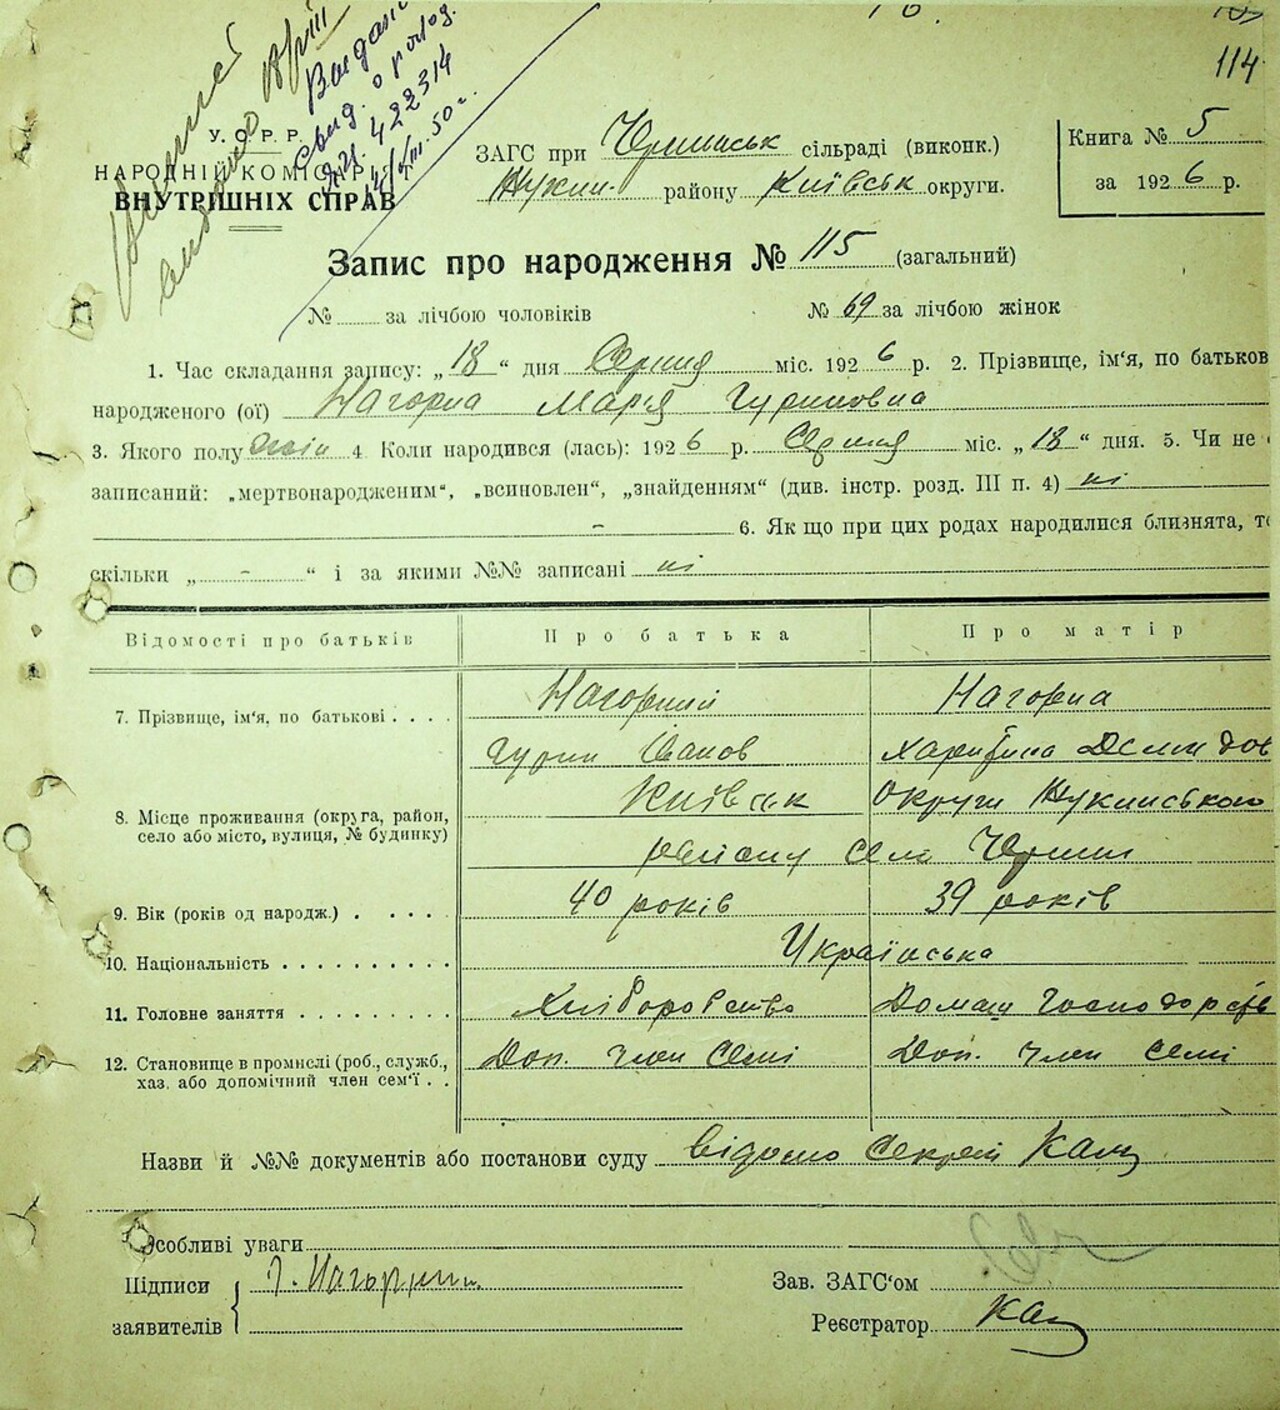 114
Выдано
свид. о рожд.
422314
50 г.
У. С. Р. Р.
НАРОДНІЙ КОМІСАР
ВНУТРІШНІХ СПРАВ
ЗАГС при сільраді (виконк.)
району Київськ округи.
Книга № 5
за 1926 р.
Запис про народження № 115 (загальний)
№ за лічбою чоловіків № 69 за лічбою жінок
1. Час складання запису: „18“ дня Серпня міс. 1926 р. 2. Прізвище, ім'я, по батьков
народженого (ої) Нагорна Марія Гуриновна
3. Якого полу жін 4. Коли народився (лась): 1926 р. Серпня міс. „18“ дня. 5. Чи не
записаний: „мертвонародженим“, „всиновлен“, „знайденням“ (див. інстр. розд. III п. 4) ні
- 6. Як що при цих родах народилися близнята, то
скільки „ - “ і за якими №№ записані ні
Відомості про батьків Про батька Про матір
7. Прізвище, ім'я, по батькові . . . . Нагорний Нагорна
Гурин Іванов Харитина Демидов
8. Місце проживання (округа, район, село або місто, вулиця, № будинку) Київськ Округи
району села
9. Вік (років од народж.) . . . . . 40 років 39 років
10. Національність . . . . . . . . . . Українська
11. Головне заняття . . . . . . . . . Хліборобство Домаш Господорств
12. Становище в промислі (роб., служб., хаз. або допомічний член сем'ї . . Доп. член семі Доп. член семі
Назви й №№ документів або постанови суду відомо Секрет Кац
Особливі уваги
Підписи Г. Нагорний Зав. ЗАГС'ом
заявителів Реєстратор Кац